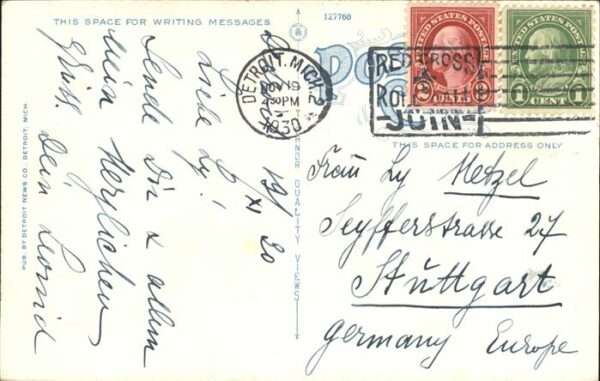 THIS SPACE FOR WRITING MESSAGES
127760
19/XI 30
Liebe Ly!
Sende Dir & allem
Mein Herzlichen
Gruß. Dein Leonid
PUB. BY DETROIT NEWS CO. DETROIT, MICH.
QUALITY VIEWS
DETROIT, MICH. 2
NOV 19
4 30 PM
1930
RED CROSS
ROLL CALL
JOIN
UNITED STATES POSTAGE
2 CENTS 2
UNITED STATES POSTAGE
1 CENT 1
THIS SPACE FOR ADDRESS ONLY
Frau Ly Metzel
Seyfferstrasse 27
Stuttgart
Germany Europe